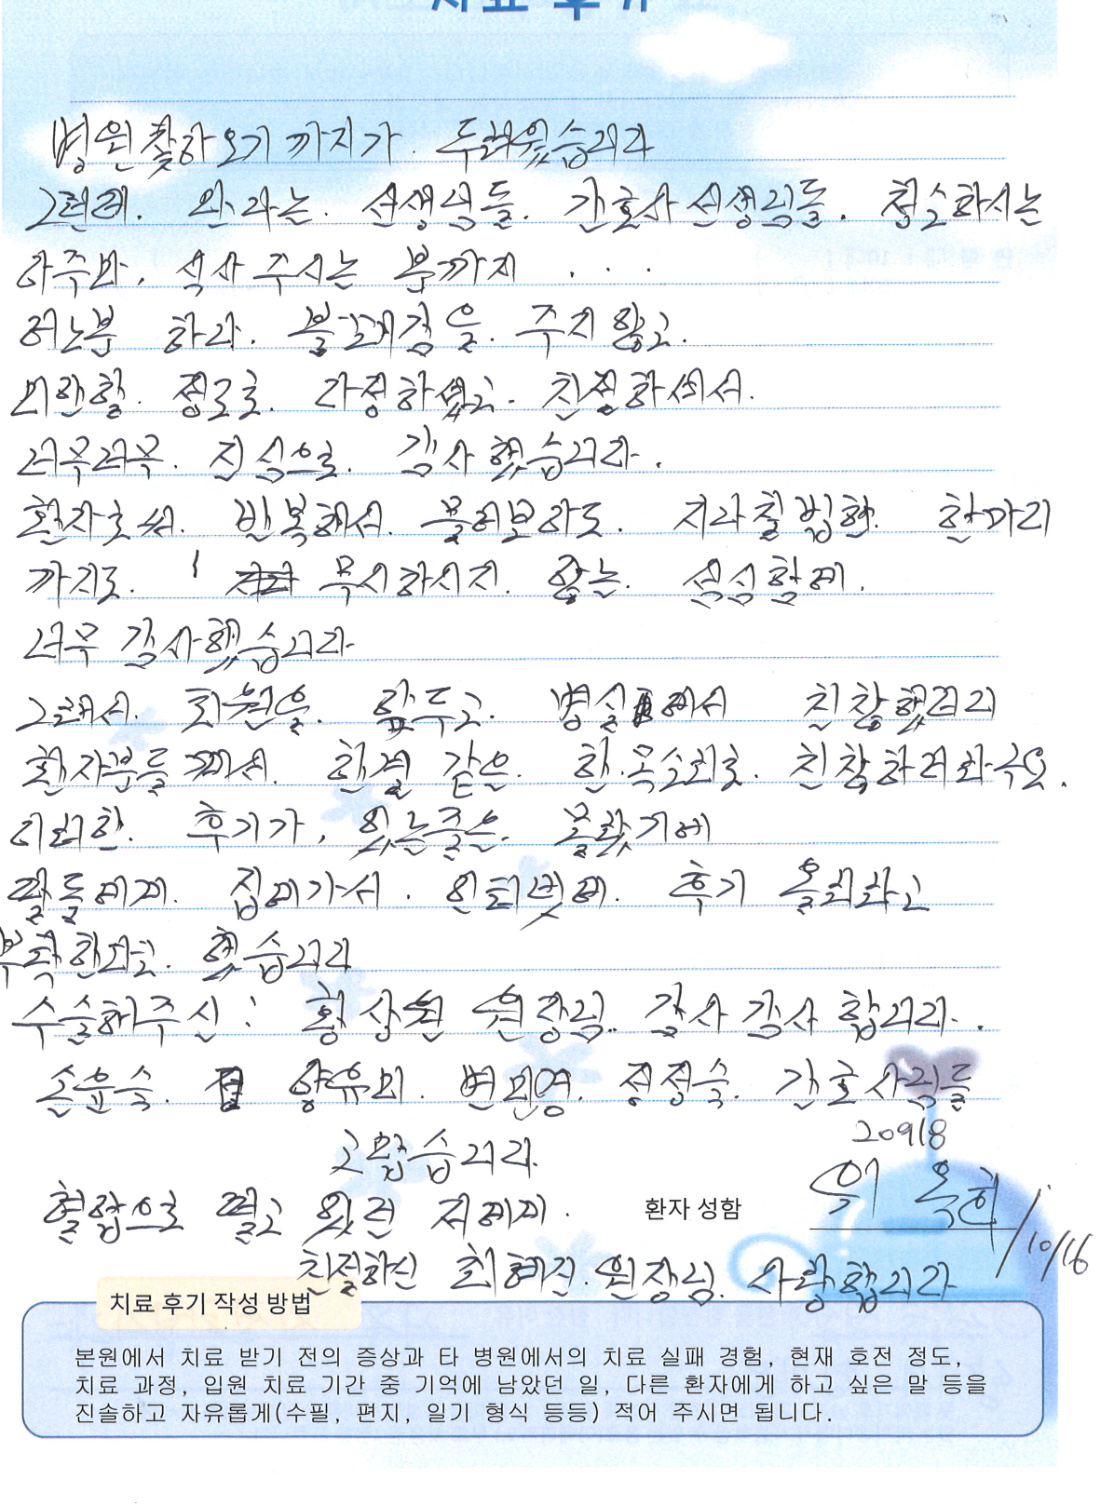 치료 후기
병원찾아오기 까지가. 두려웠습니다
그런데. 왠 선생님들. 간호사 선생님들. 청소하시는
아주마, 식사 주시는 분까지 ....
어느분 하나. 불쾌감을. 주지 않고.
미안할. 정도로. 다정하셨고. 친절하셔서.
너무너무. 진심으로. 감사했습니다.
환자로써. 반복해서. 물어보아도. 지나칠법한. 한마디
까지도. 무시하시지. 않는. 섬심함에.
너무 감사했습니다
그래서. 퇴원을. 앞두고. 병실에서 칭찬했더니
환자분들께서. 한결 같은. 한.목소리로. 칭찬하더라구요.
이러한. 후기가, 있는줄은. 몰랐기에
딸들에게. 집에가서. 인터넷에. 후기 올리라고
부탁한다고. 했습니다
수술해주신: 황상원 원장님. 감사 감사 합니다.
손윤숙. 양유미. 변민영. 정점숙. 간호사님들
20918
고맙습니다.
혈압으로 떨고 있던 저에게.
환자 성함
옥희 10/16
친절하신 최혜진.원장님. 사랑합니다
치료 후기 작성 방법
본원에서 치료 받기 전의 증상과 타 병원에서의 치료 실패 경험, 현재 호전 정도,
치료 과정, 입원 치료 기간 중 기억에 남았던 일, 다른 환자에게 하고 싶은 말 등을
진솔하고 자유롭게(수필, 편지, 일기 형식 등등) 적어 주시면 됩니다.